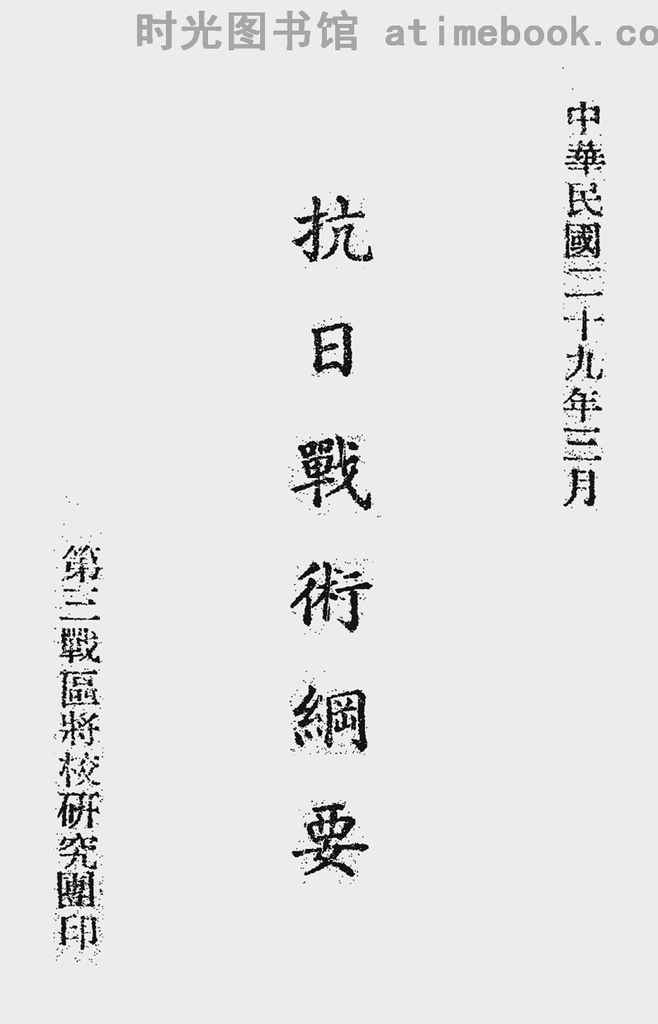 时光图书馆 atimebook.co
中華民國二十九年三月
抗日戰術綱要
第三戰區將校研究團印